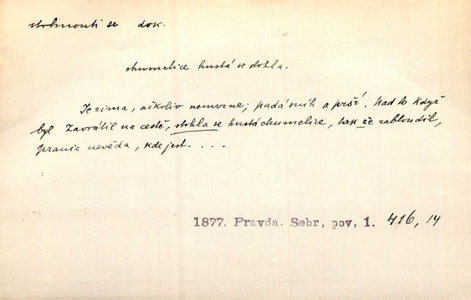 strhnouti se dok.
chumelice hustá se strhla.
Je zima, ačkoliv nemrzne; padá sníh a prší. Nad to když
byl zavrátil na cestě, strhla se hustá chumelice, tak že zabloudil,
pranic nevěda, kde jest. . . .
1877. Pravda. Sebr, pov, 1. 416, 14